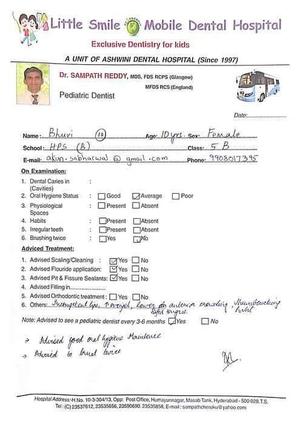 Little Smile Mobile Dental Hospital
Exclusive Dentistry for kids
A UNIT OF ASHWINI DENTAL HOSPITAL (Since 1997)
Dr. SAMPATH REDDY, MDS, FDS RCPS (Glasgow)
MFDS RCS (England)
Pediatric Dentist
Date:
Name: Bhuvi Age: 10yrs Sex: Female
School: HPS (B) Class: 5 B
E-mail: @gmail.com Phone: 9908017395
On Examination:
1. Dental Caries in :
(Cavities)
2. Oral Hygiene Status : Good Average Poor
3. Physiological : Present Absent
Spaces
4. Habits : Present Absent
5. Irregular teeth : Present Absent
6. Brushing twice : Yes No
Adviced Treatment:
1. Advised Scaling/Cleaning : Yes No
2. Advised Flouride application: Yes No
3. Advised Pit & Fissure Sealants: Yes No
4. Advised Filling in
5. Advised Orthodontic treatment : Yes No
6. Others: Incompetent lips, lower anterior crowding,
Note: Advised to see a pediatric dentist every 3-6 months Yes No
→ Advised good oral hygiene Maintence
→ Advised to brush twice
Hospital Address: H.No. 10-3-304/13, Opp. Post Office, Humayunnagar, Masab Tank, Hyderabad - 500 028. T.S.